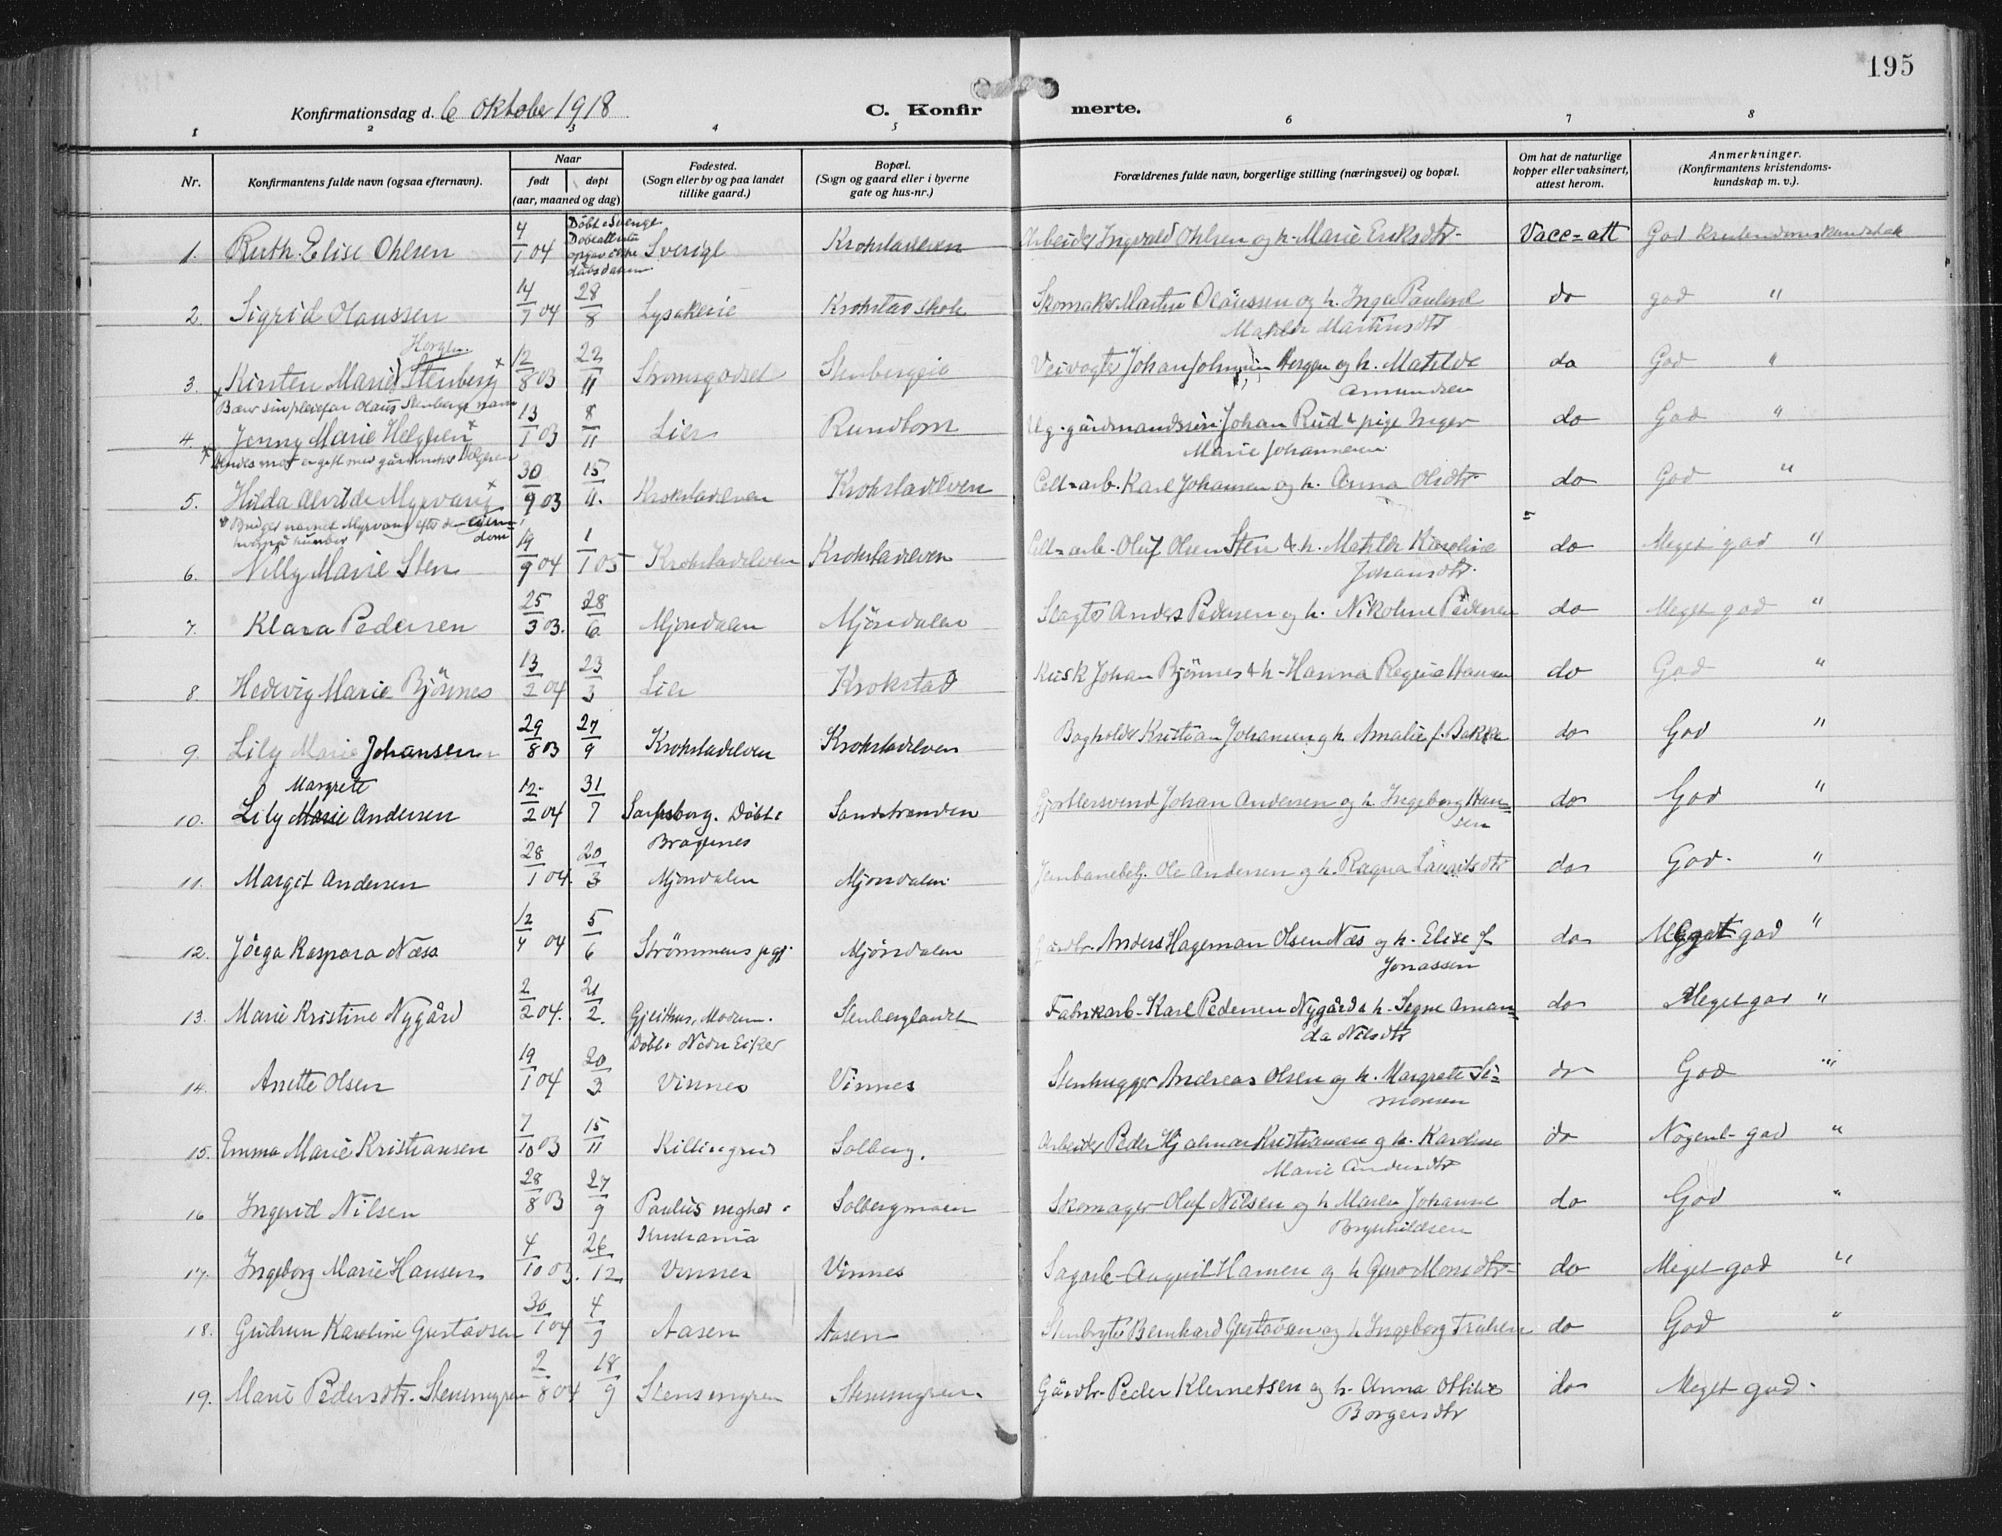 195
Konfirmationsdag d. 6 oktober 1918
C. Konfirmerte.
1 2 3 4 5 6 7 8
Nr. Konfirmantens fulde navn (ogsaa efternavn). Naar født døpt (aar, maaned og dag) Fødested. (Sogn eller by og paa landet tillike gaard.) Bopæl. (Sogn og gaard eller i byerne gate og hus-nr.) Forældrenes fulde navn, borgerlige stilling (næringsvei) og bopæl. Om hat de naturlige kopper eller vaksinert, attest herom. Anmerkninger. (Konfirmantens kristendoms-kundskap m. v.).
1. Ruth Elise Ohlsen 4/1 04 Döbt i Sverige Döbeattesten opgav ikke daabsdatum Sverige Krokstadelven Arbeider Ingvald Ohlsen og h. Marie Eriksdtr. Vacc=att God kristendomskundskab
2. Sigrid Olaussen 14/7 04 28/8 Lysakereie Krokstad skole Skomaker Martin Olaussen og h. Inga Pauline do god "
Matilde Martinsdtr
Horgen
3. Kirsten Marie Stenberg x 12/8 03 22/11 Stromsgodset Stenbergeie Veivogter Johan Johnsen Horgen og h. Matilde do God "
Amundsen
x Bærer sin pleiefar Olaus Stenbergs navn
4. Jenny Marie Helgesen x 13/1 03 8/11 Lier Rundtom Ug. gårdmandssön Johan Rud & pige Inger do God "
Marie Johannesen
x Hendes mor er gift med gårdbruker Helgesen
5. Hilda Alvilde Myrvang x 30/9 03 15/11. Krokstadelven Krokstadelven Cell=arb. Karl Johansen og h. Anna Olsdtr. do God "
x Bruger navnet Myrvang efter den eiendom
6. Nelly Marie Sten 19/9 04 1/1 05 Krokstadelven Krokstadelven Cell=arb. Oluf Olsen Sten & h. Matilde Karoline do Meget god "
Johansdtr.
7. Klara Pedersen 25/3 03. 28/6 Mjøndalen Mjøndalen Slagter Anders Pedersen og h. Nikoline Pedersen do Meget god "
8 Hedevig Marie Bjönnes 13/2 04 23/3 Lier Krokstad Kusk Johan Bjönnes & h. Hanna Regine Hansen do God "
9. Lily Marie Johansen 29/8 03 27/9 Krokstadelven Krokstadelven Bogholder Kristian Johansen og h. Amalie f. Bakke do God "
Margrete
10. Lily Marie Andersen 12/2 04 31/7 Sarpsborg. Döbt i Sandstranden Gjørtlersvend Johan Andersen og h. Ingeborg Han= do God "
Bragernes sen
11. Margit Andersen 28/1 04. 20/3 Mjøndalen Mjøndalen Jernbanebetj. Ole Andersen og h. Ragna Lauritsdtr do God. "
12. Jörga Kaspara Næss 12/4 04 5/6 Strömmens pgj. Mjöndalen Gårdbr. Anders Hageman Olsen Næs og h. Elise f. do Meget god "
Jonassen
13. Marie Kristine Nygård 2/2 04. 21/2. Gjeithus, Modum. Stenberglandet Fabrikarb. Karl Pedersen Nygård & h. Signe Aman= do Meget god "
Döbt i Nedre Eiker da Nilsdtr
14. Anette Olsen 19/1 04 20/3 Vinnes Vinnes Stenhugger Andreas Olsen og h. Margrete Si= do God "
monsen
15. Emma Marie Kristiansen 7/10 03 15/11 Killingrud Solberg. Arbeider Peder Hjalmar Kristiansen og h. Karoline do Nogenl. god "
Marie Andersdtr
16 Ingrid Nilsen 28/8 03 27/9 Paulus meghed i Solbergmoen Skomager Oluf Nilsen og h. Maren Johanne do God "
Kristiania Brynhildsen
17. Ingeborg Marie Hansen 4/10 03. 26/12 Vinnes Vinnes Sagarb. August Hansen og h. Guro Monsdtr. do Meget god "
18. Gudrun Karoline Gustavsen 30/1 04 4/9 Aasen Aasen Stenbryter Bernhard Gustavsen og h. Ingeborg do God "
19. Marie Pedersdtr. Stensengren 2/8 04 18/9 Stensengren Stensengren. Gårdbr. Peder Klemetsen og h. Anna Othilie do Meget god.
Borgersdtr